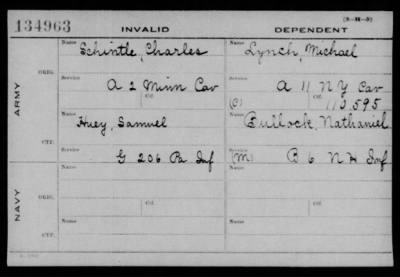 134963 INVALID DEPENDENT (3-M-3)
Name Schintle, Charles Name Lynch, Michael
ARMY
ORIG.
Service A 2 Minn Cav Service A 11 N Y Cav
Ctf. Ctf. (C) 113.595
Name Huey, Samuel Name Bullock, Nathaniel
CTF.
Service G 206 Pa Inf Service (M) B 6 N H Inf
NAVY
ORIG.
Name Ctf. Name Ctf.
CTF.
Name Name